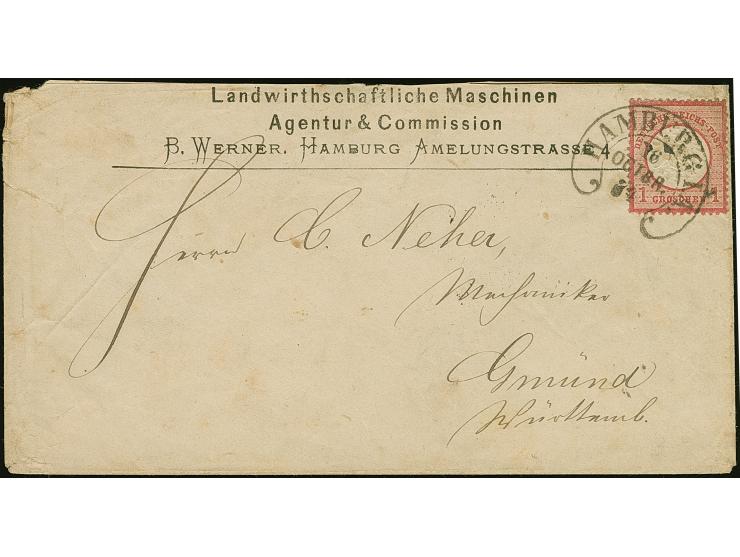 Landwirthschaftliche Maschinen
Agentur & Commission
B. WERNER. HAMBURG AMELUNGSTRASSE 4
HAMBURG I.A.
16
OCTBR.
REICHS-POST
1 GROSCHEN 1
Herrn C. Neher,
Mechaniker
Gmünd
Württemb.